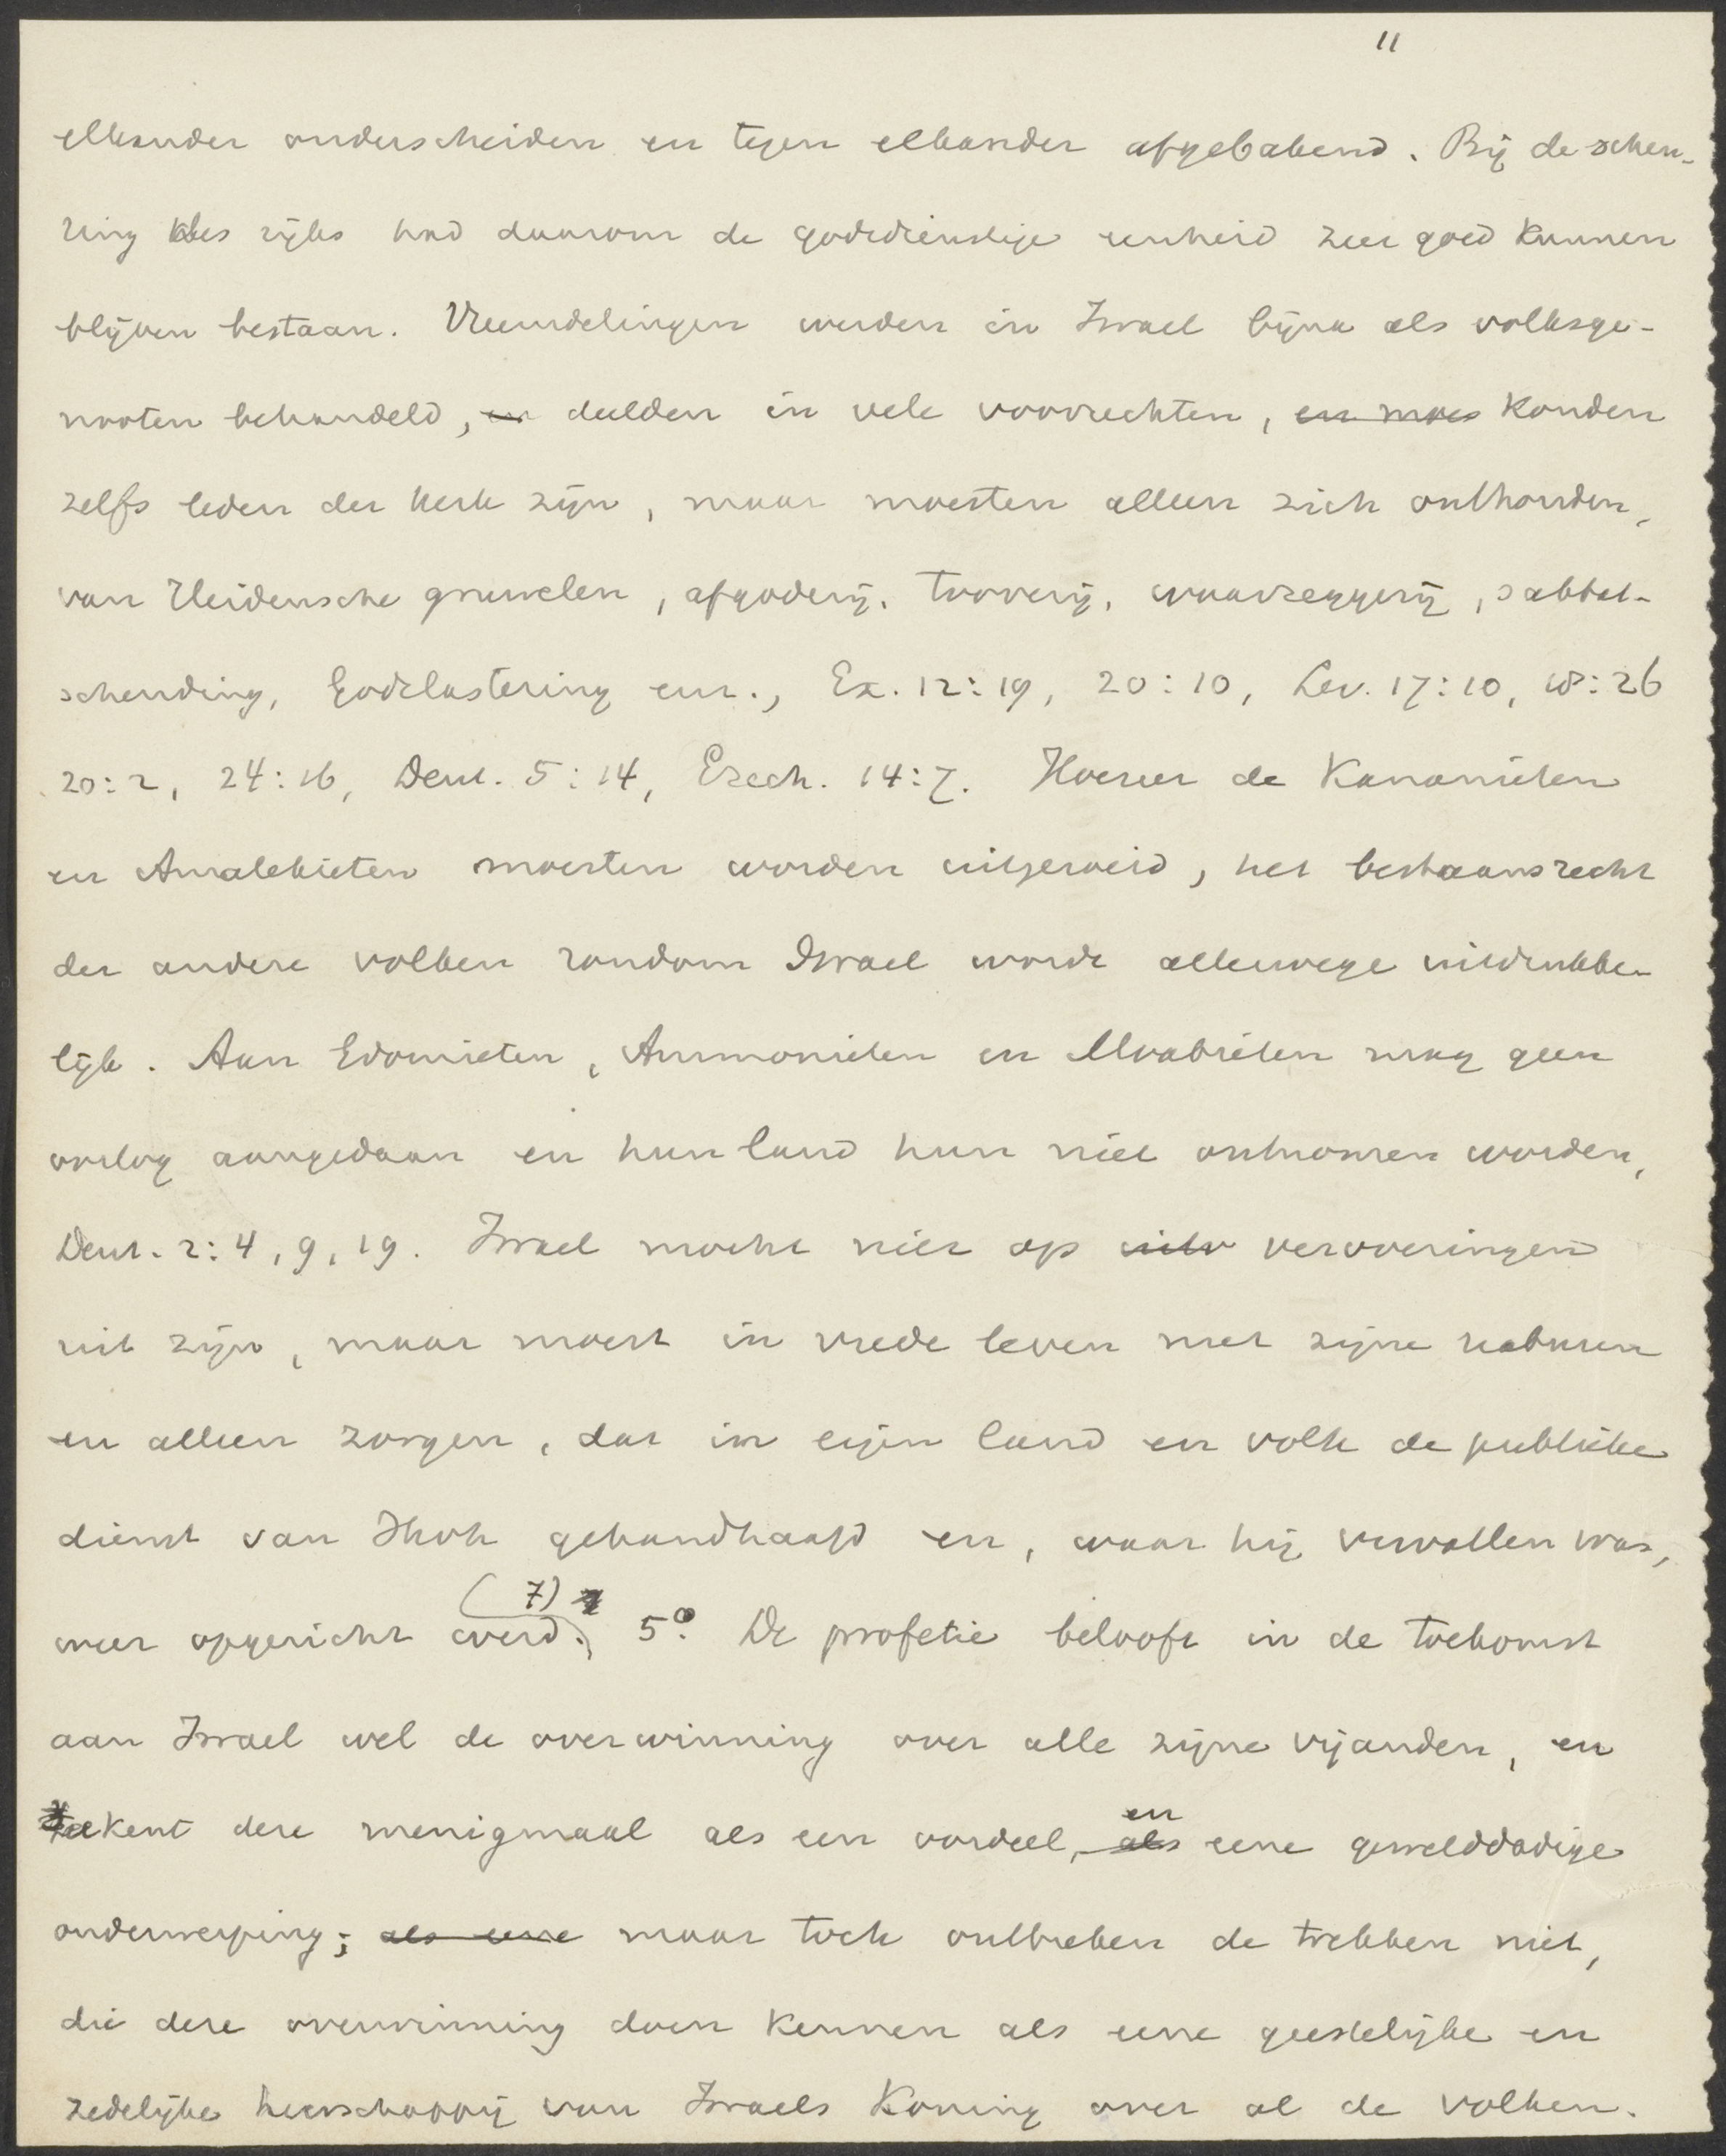 11
elkander onderscheiden en tegen elkander afgebakend. Bij de scheu-
ring des rijks had daarom de godsdienstige eenheid zeer goed kunnen
blijven bestaan. Vreemdelingen werden in Israel bijna als volksge-
nooten behandeld, en deelden in vele voorrechten, en moes konden
zelfs leden der kerk zijn, maar moesten alleen zich onthouden,
van Heidensche gruwelen, afgoderij, tooverij, waarzeggerij, sabbat-
schending, Godslastering enz., Ex. 12:19, 20:10, Lev. 17:10, 18:26
20:2, 24:16, Deut. 5:14, Ezech. 14:7. Hoezeer de Kanaänieten
en Amalekieten moesten worden uitgeroeid, het bestaansrecht
der andere volken rondom Israel wordt allerwege uitdrukke-
lijk. Aan Edomieten, Ammonieten en Moabieten mag geen
oorlog aangedaan en hun land hun niet ontnomen worden,
Deut. 2:4, 9, 19. Israel mocht niet op veroveringen
uit zijn, maar moest in vrede leven met zijne naburen
en alleen zorgen, dat in eigen land en volk de publieke
dienst van Jhvh gehandhaafd en, waar hij vervallen was,
(7)
weer opgericht werd. 5° De profetie belooft in de toekomst
aan Israel wel de overwinning over alle zijne vijanden, en
teekent deze menigmaal als een oordeel, als en eene gewelddadige
onderwerping; als eene maar toch ontbreken de trekken niet,
die deze overwinning doen kennen als eene geestelijke en
zedelijke heerschappij van Israels Koning over al de volken.